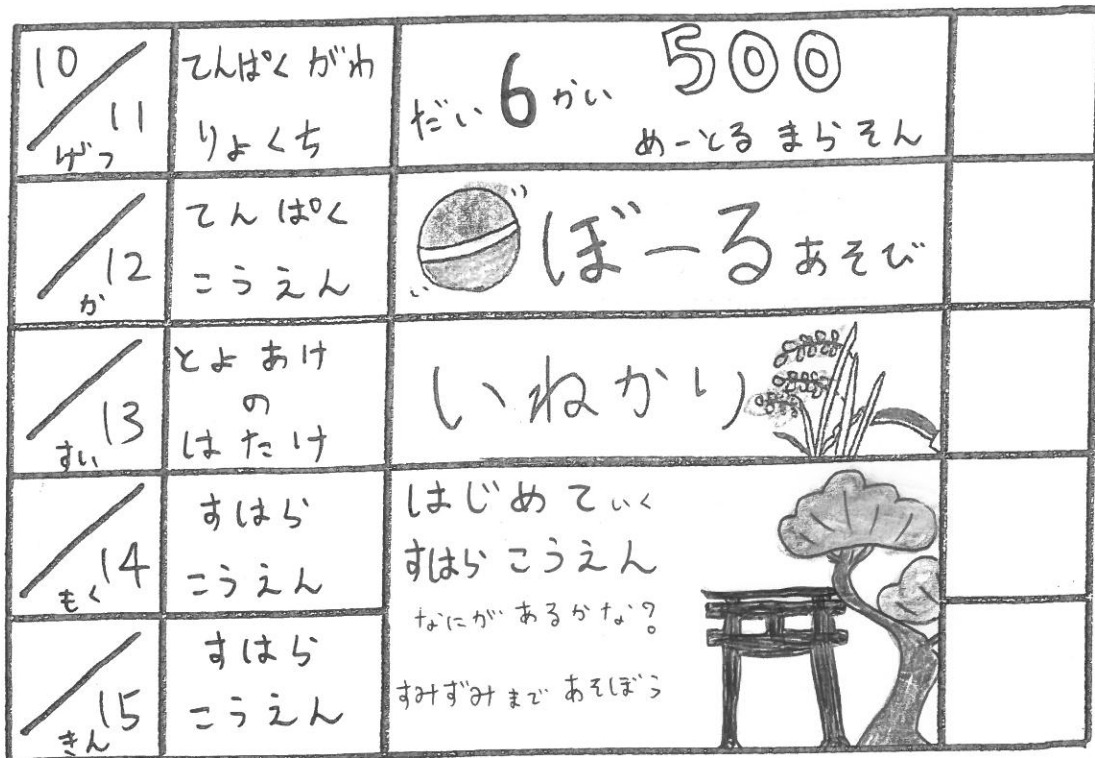 10/11
げつ
てんぱくがわ
りょくち
だい6かい 500
めーとる まらそん
/12
か
てんぱく
こうえん
ぼーるあそび
/13
すい
とよあけ
の
はたけ
いねかり
/14
もく
すはら
こうえん
はじめていく
すはらこうえん
なにがあるかな?
すみずみまで あそぼう
/15
きん
すはら
こうえん